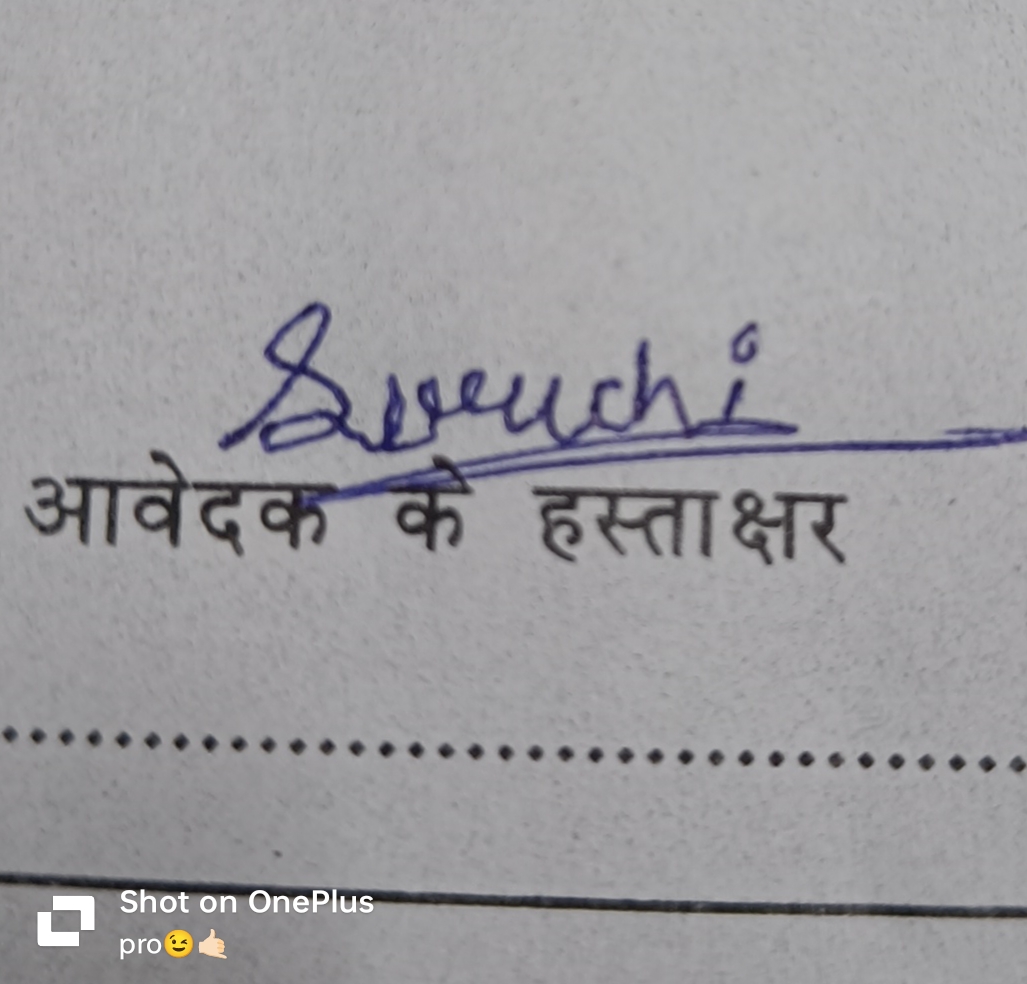 Suruchi
आवेदक के हस्ताक्षर
Shot on OnePlus
pro😉🤙🏻